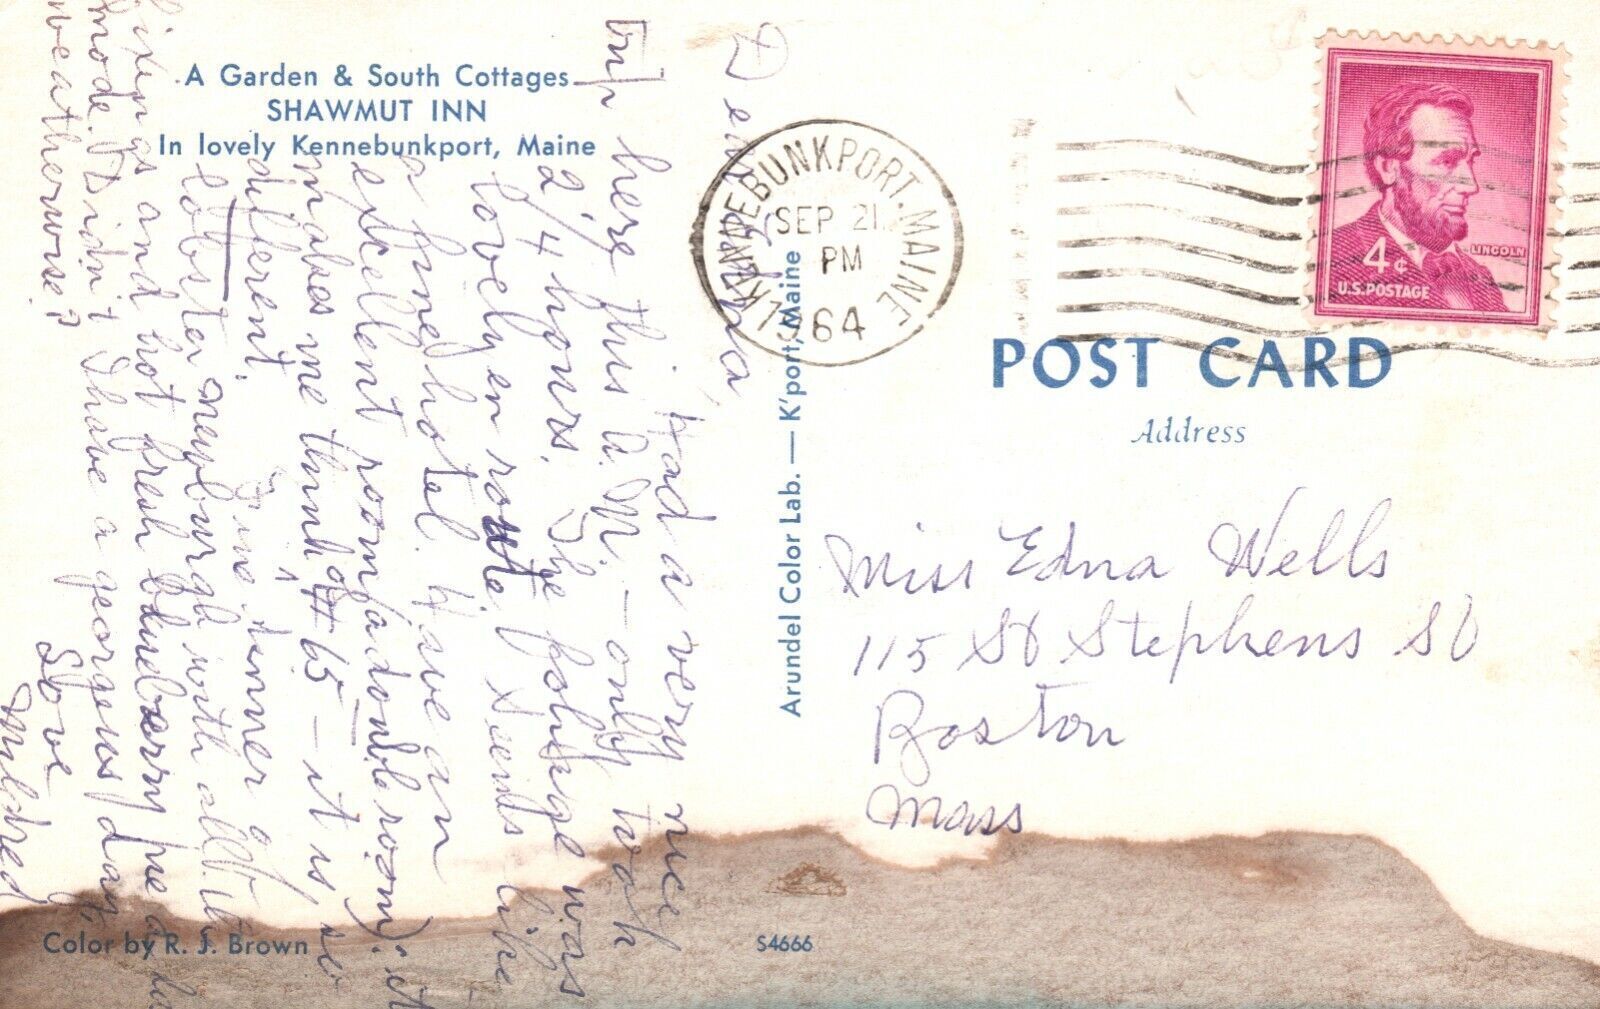 A Garden & South Cottages
SHAWMUT INN
In lovely Kennebunkport, Maine
Dear Edna,
Had a very nice
trip here this A.M. – only took
2 1/4 hours. The foliage was
lovely en route. Seems like
a fine hotel. Have an
excellent room (a double room). It
makes me think of # 65 – it is so
different.
Fine dinner of
lobster newburgh with all the
fixings and hot fresh blueberry pie a la
mode. Didn't I have a georgeus day,
weatherwise?
Love
Mildred
Arundel Color Lab. — K'port, Maine
KENNEBUNKPORT. MAINE
SEP 21
PM
1964
4¢
LINCOLN
U.S. POSTAGE
POST CARD
Address
Miss Edna Wells
115 St Stephens St
Boston
Mass
Color by R. J. Brown
S4666